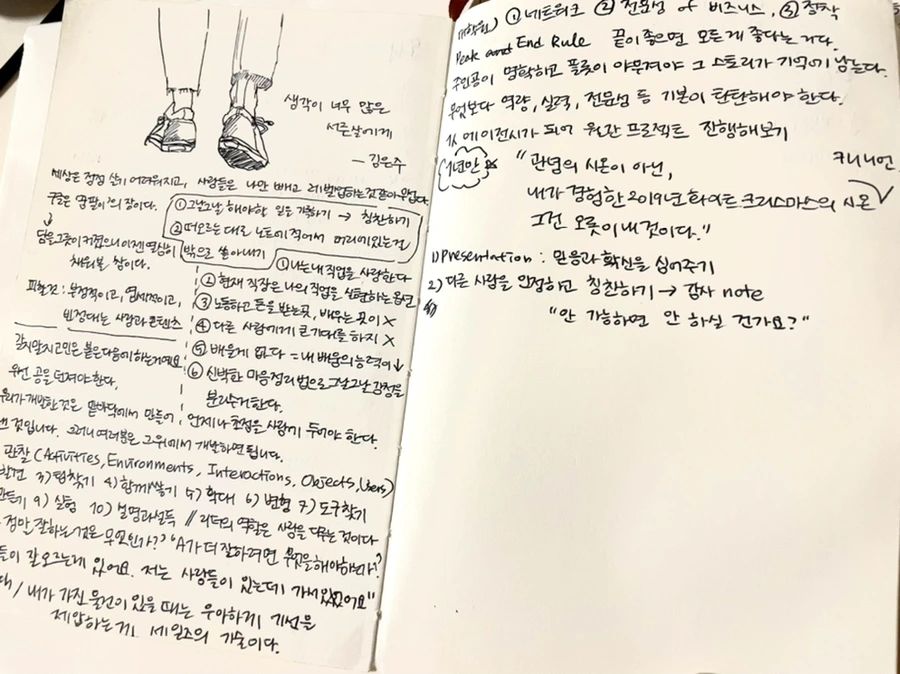 생각이 너무 많은
서른살에게
— 김은주
세상은 점점 살기 어려워지고, 사람들은 나만 빼고 레벨업하는것같아 무섭다.
구글은 '땀 땀이'의 장이다.
↓
담을그릇이 커졌으니 이젠 열심히
채워볼 참이다.
① 그날그날 해야할 일을 기록하기 → 칭찬하기
② 떠오르는대로 노트에 적어서 머리에있는걸
밖으로 쏟아내기
피할것: 부정적이고, 염세적이고,
빈정대는 사람과 콘텐츠
① 나는 내 직업을 사랑한다
② 현재 직장은 나의 직업을 실현하는 옵션
③ 노동하고 돈을 받는곳, 배우는 곳이 X
④ 다른 사람에게 큰 기대를 하지 X
⑤ 배울게 없다 = 내 배움의 능력이 ↓
⑥ 신박한 마음정리법으로 그날그날 감정을
분리수거한다.
갈지말지 고민은 붙은다음에 하는거예요
우선 공을 던져야 한다.
우리가 개발한 것은 맨바닥에서 만들어
것입니다. 그러니 여러분은 그위에서 개발하면 됩니다.
언제나 초점을 사람에 두어야 한다.
관찰 (Activities, Environments, Interactions, Objects, Users)
발견 3) 탐찾기 4) 함께쌓기 5) 확대 6) 변형 7) 도구찾기
만들기 9) 실험 10) 설명과설득 // 리더의 역할은 사람을 다루는 것이다
정말 잘하는것은 무엇인가?" "A가 더 잘하려면 무엇을해야하는가?
들이 잘 모르는게 있어요. 저는 사람들이 있는데 가서있었어요"
/ 내가 가진 물건이 있을 때는 우아하게 기선을
제압하는게 세일즈의 기술이다.
대학원) ① 네트워크 ② 전문성 of 비즈니스, ③ 정착
Peak and End Rule 끝이 좋으면 모든게 좋다는거다.
주인공이 명확하고 플롯이 야무져야 그 스토리가 기억에 남는다.
무엇보다 역량, 실력, 전문성 등 기본이 탄탄해야 한다.
1人 에이전시가 되어 월간 프로젝트 진행해보기
1년만
"관념의 시온이 아닌,
키니니언
내가 경험한 2019년 화이트 크리스마스의 시온
그건 오롯이 내 것이다."
1) Presentation: 믿음과 확신을 심어주기
2) 다른 사람을 인정하고 칭찬하기 → 감사 note
"안 가능하면 안 하실 건가요?"